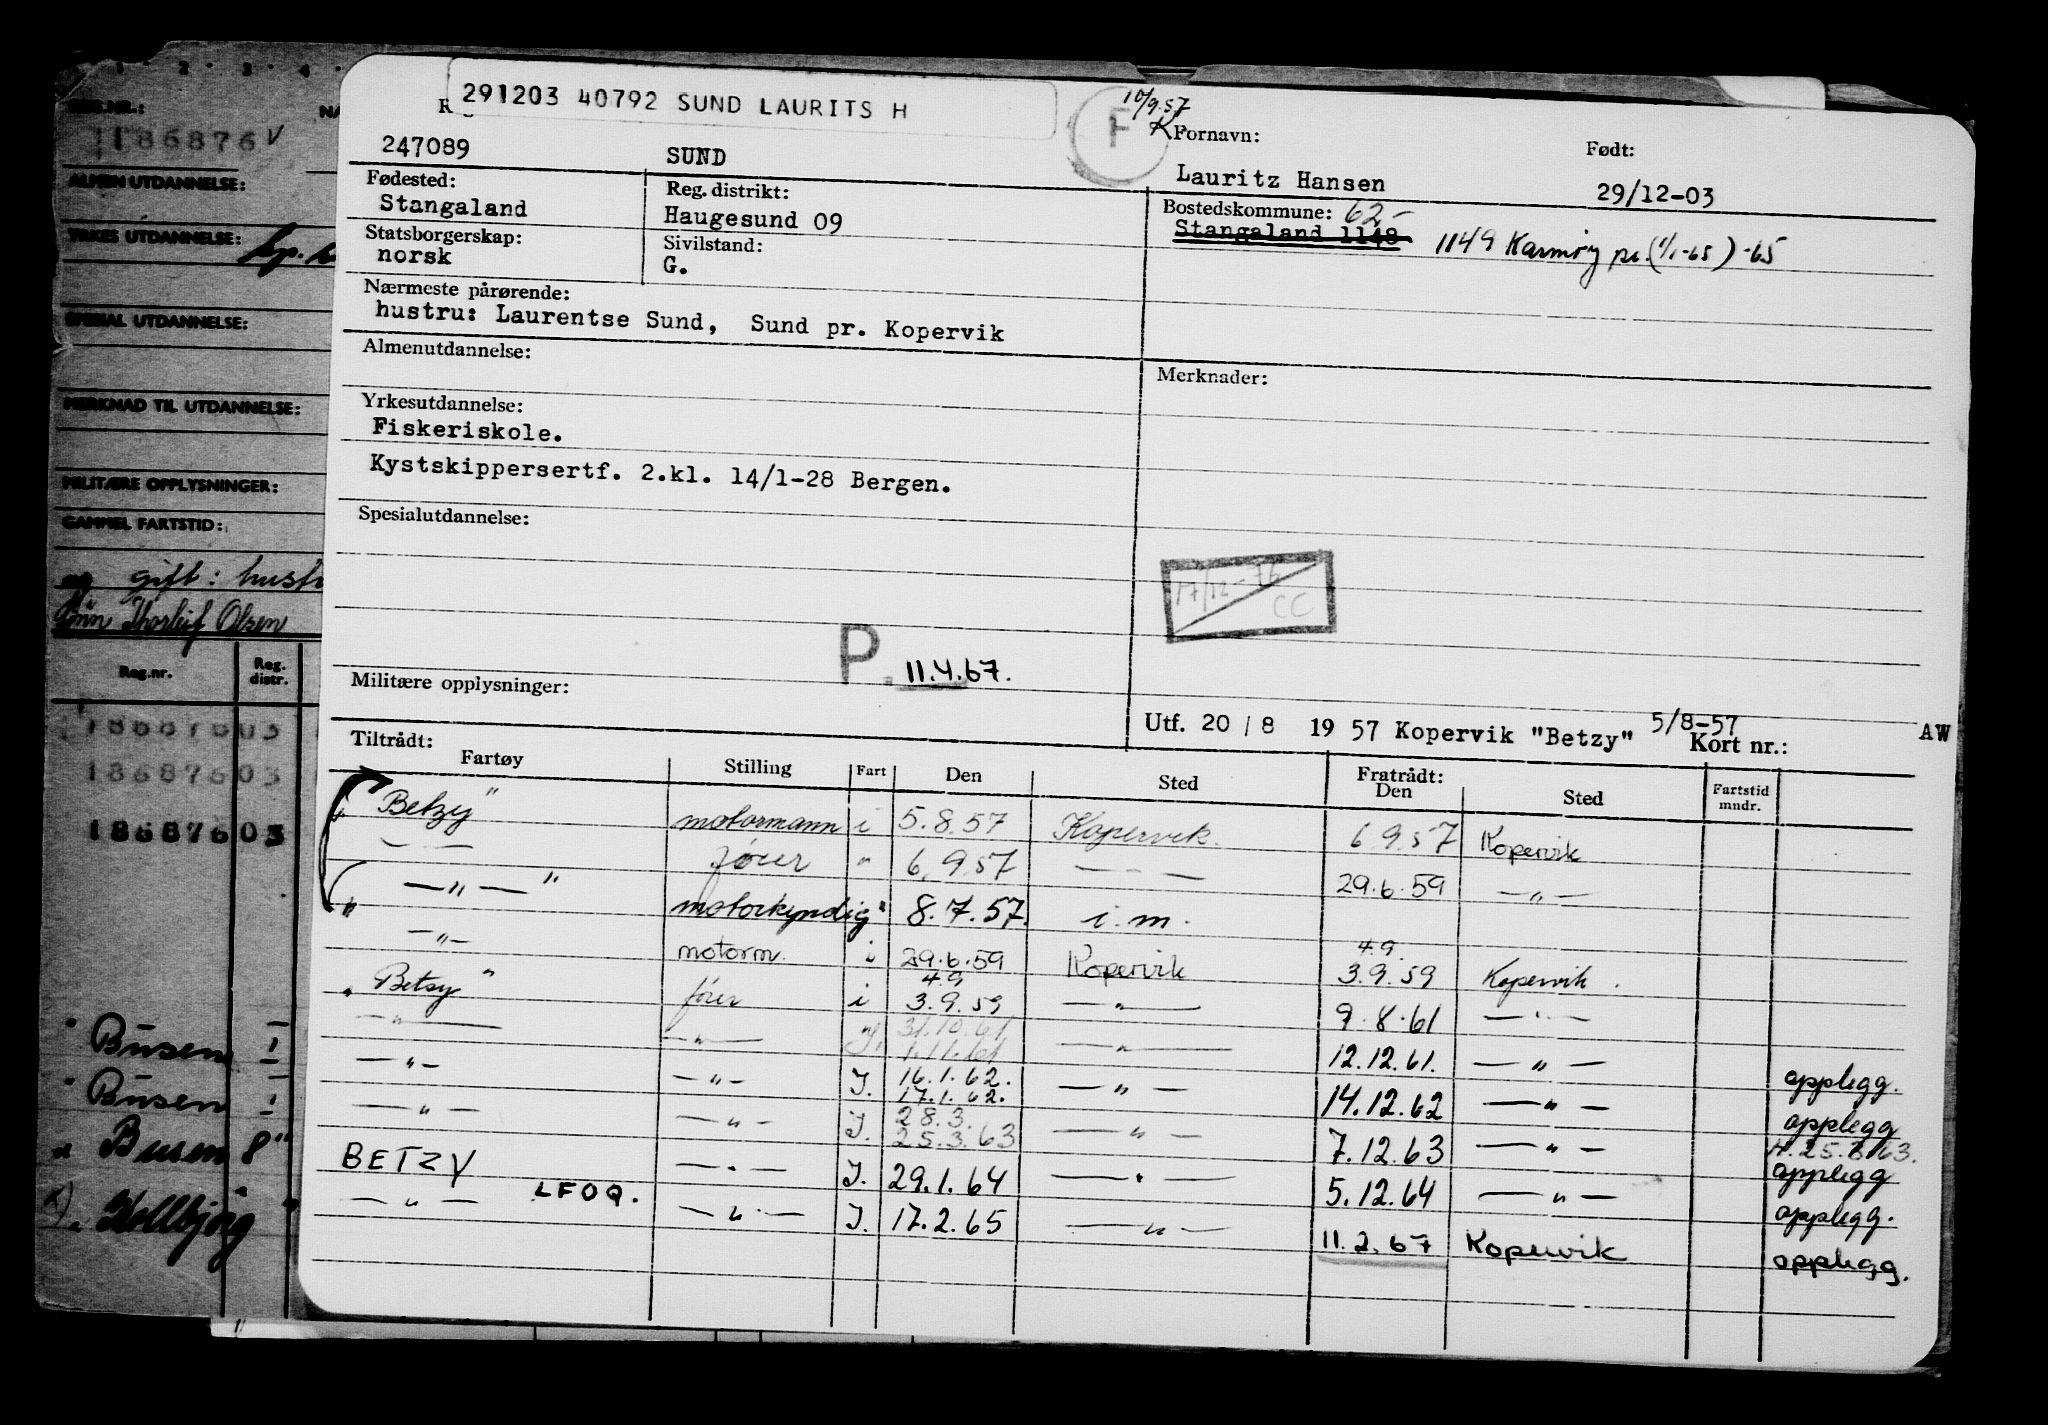 1 2 3 4
REG.NR.: NA
186876 V
ALMEN UTDANNELSE:
YRKES UTDANNELSE:
SPESIAL UTDANNELSE:
MERKNAD TIL UTDANNELSE:
MILITÆRE OPPLYSNINGER:
GAMMEL FARTSTID:
og gift: hustr
Thorleif Olsen
Reg.nr. Reg. distr.
186876 03
186876 03
186876 03
" Busen I
" Busen I
" Busen 8"
291203 40792 SUND LAURITS H
F
10/9.57
K
Fornavn: Født:
247089 SUND Lauritz Hansen 29/12-03
Fødested: Reg. distrikt: Bostedskommune: 62-
Stangaland Haugesund 09 Stangaland 1148 1149 Karmøy pr. (1/1-65) -65
Statsborgerskap: Sivilstand:
norsk G.
Nærmeste pårørende:
hustru: Laurentse Sund, Sund pr. Kopervik
Almenutdannelse: Merknader:
Yrkesutdannelse:
Fiskeriskole.
Kystskippersertf. 2.kl. 14/1-28 Bergen.
Spesialutdannelse:
17/12-76
CC
P. 11.4.67.
Militære opplysninger:
Utf. 20 / 8 19 57 Kopervik "Betzy" 5/8-57 Kort nr.: AW
Tiltrådt: Fratrådt:
Fartøy Stilling Fart Den Sted Den Sted Fartstid mndr.
" Betzy " motormann i 5.8.57 Kopervik. 6 9.57 Kopervik
— — fører " 6.9.57 — — — 29.6.59 — " —
" — " — " motorkyndig " 8.7.57. i.m.
— " — motorm. i 29.6.59 Kopervik 4.9. 3.9.59 Kopervik.
" Betsy " fører i 4.9 3.9.59 — " — 9.8.61 — " —
— " — — " — I. 31.10.61 1.11.61 — " — 12.12.61. — " — opplegg.
— " — — " — I. 16.1.62. 17.1.62. — " — 14.12.62 — " — opplegg
— " — — " — I. 28.3. 25.3.63 — " — 7.12.63 — " — 25.3.63. opplegg
BETZY — " — I. 29.1.64 — " — 5.12.64 — " — opplegg.
— " — LFOQ. — " — I. 17.2.65 — " — 11.2.67 Kopervik opplegg.